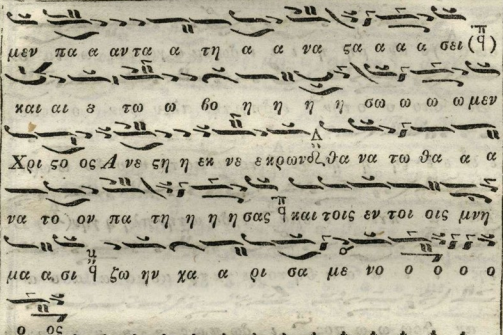 μεν πα α αν τα α τη α α να ϛα α α α σει (ᾳ)
και αι ε τω ω βο η η η η σω ω ω ω μεν
Χρι ϛο ος Α νε ϛη η εκ νε εκρων θα να τω θα α α
να το ον πα τη η η η σας και τοις εν τοι οις μνη
μα α σι ζω ην χα α ρι σα με νο ο ο ο ο
ο ος